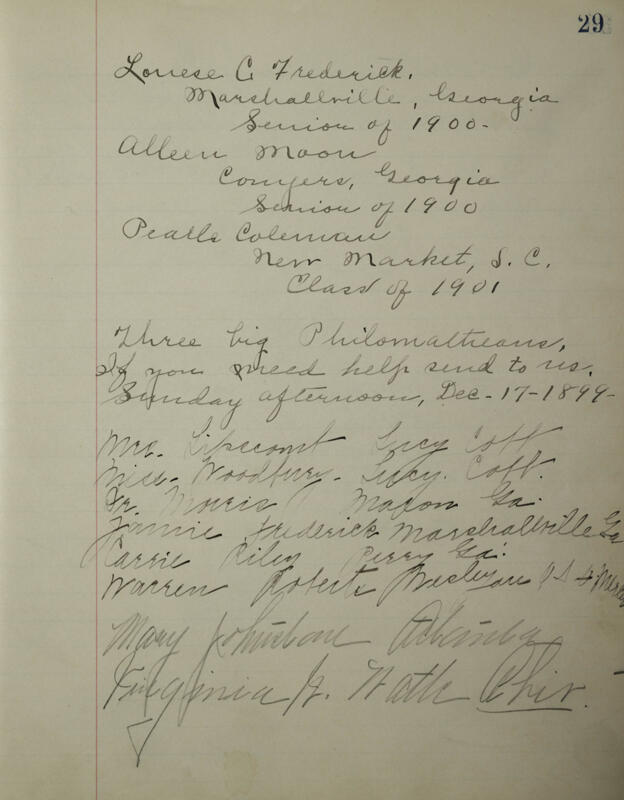 29
Louese C. Frederick.
Marshallville, Georgia
Senior of 1900-
Alleen Moon
Conyers, Georgia
Senior of 1900
Pearle Coleman
New Market, S. C.
Class of 1901
Three big Philomatheans,
If you need help send to us.
Sunday afternoon, Dec-17-1899-
Mrs. Lipscomb Lucy Cobb
Miss. Woodbury - Lucy. Cobb.
Dr. Morris Macon Ga.
Jinnie Frederick Marshallville Ga
Carrie Riley Perry Ga.
Warren Roberts Wesleyan
Mary Johnson Atlanta
Virginia